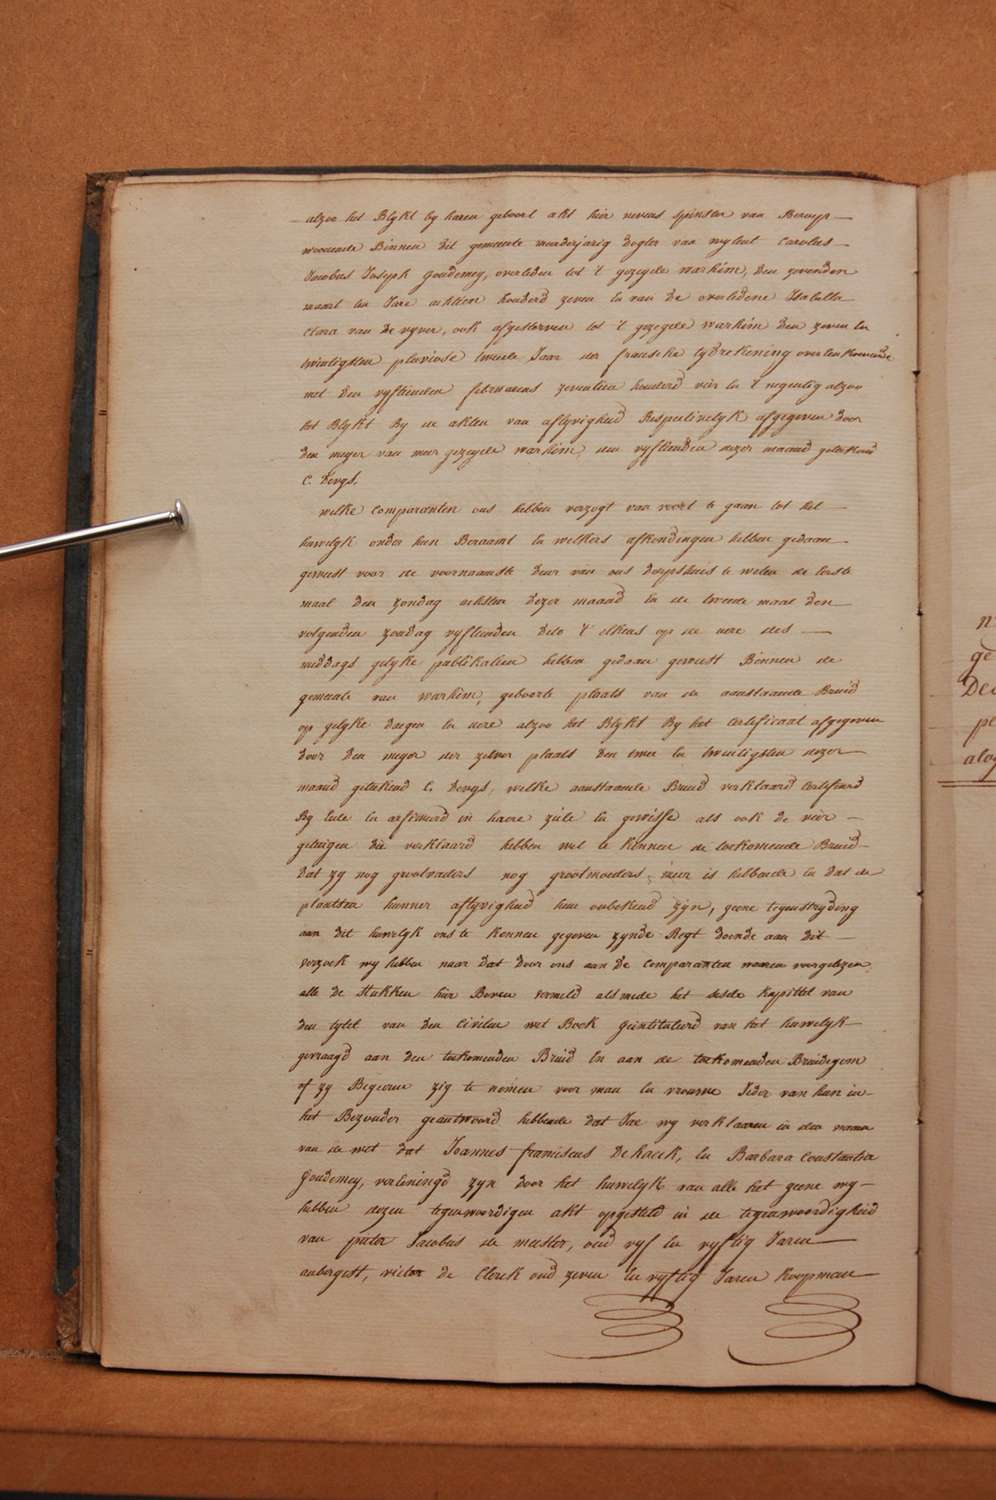 alzoo het Blykt by haren geboort akt hier nevens spinster van Beroep
woonende Binnen dit gemeente meerderjarig dogter van wylent Carolus
Jacobus Joseph Goudemey, overleden tot 't gezegde warkim, den zevenden
maart en Jare achtien honderd zeven en van de overledene Isabelle
Clara van de vyver, ook afgestorven tot 't gezegde warkim den zeven en
twintigsten pluviose tweede Jaar der fransche tydrekening overeenkomende
met den vyftienden februarius zeventien honderd vier en 't negentig alzoo
het Blykt By de akten van aflyvigheid Respectivelyk afgegeven door
den meyer van meer gezegde warkim, den vyftienden dezer maand getekend
C. Devys.
welke comparanten ons hebben verzogt van voort te gaan tot het
huwelyk onder hun Beraamt en welkers afkondingen hebben gedaan
geweest voor de voornaamste deur van ons dorpshuis te weten de eerste
maal den zondag achsten dezer maand en de tweede maal den
volgenden zondag vyftienden dito 't elkens op de uere des
middags gelyke publikatien hebben gedaan geweest Binnen de
gemeente van warkim, geboorte plaats van de aanstaande Bruid
op gelyke dagen en uere alzoo het Blykt By het certificaat afgegeven
door den meyer der zelver plaats den twee en twintigsten dezer
maand getekend C. Devys, welke aanstaande Bruid verklaard certifieerd
By eede en in haere ziele en gewisse als ook de vier
getuigen die verklaard hebben wel te kennen de toekomende Bruid
dat zy nog grootvaders nog grootmoeders meer is hebbende en dat de
plaatsen hunner aflyvigheid hun onbekend zyn, geene tegenstryding
aan dit huwelyk ons te kennen gegeven zynde Regt doende aan dit
verzoek wy hebben naar dat door ons aan de comparanten voorgelezen
alle de stukken hier Boven vermeld als mede het sesde kapittel van
den tytel van den Civilen wet Boek geintituleerd van het huwelyk
gevraagd aan den toekomenden Bruid en aan de toekomenden Bruidegom
of zy Begeeren zig te nemen voor man en vrouwe Jeder van hun in
het Bezonder geantwoord hebbende dat Jae wy verklaaren in den naam
van de wet dat Joannes franciscus Dehaeck, en Barbara Constantia
Goudemey, vereeningd zyn door het huwelyk van alle het geene wy
hebben dezen tegenwoordigen akt opgesteld in de tegenwoordigheid
van pieter Jacobus de meester, oud vyf en vyftig Jaren
aubergist, victor de Clerck oud zeven en vyftig Jaren koopman
n
ge
Dec
pe
alog